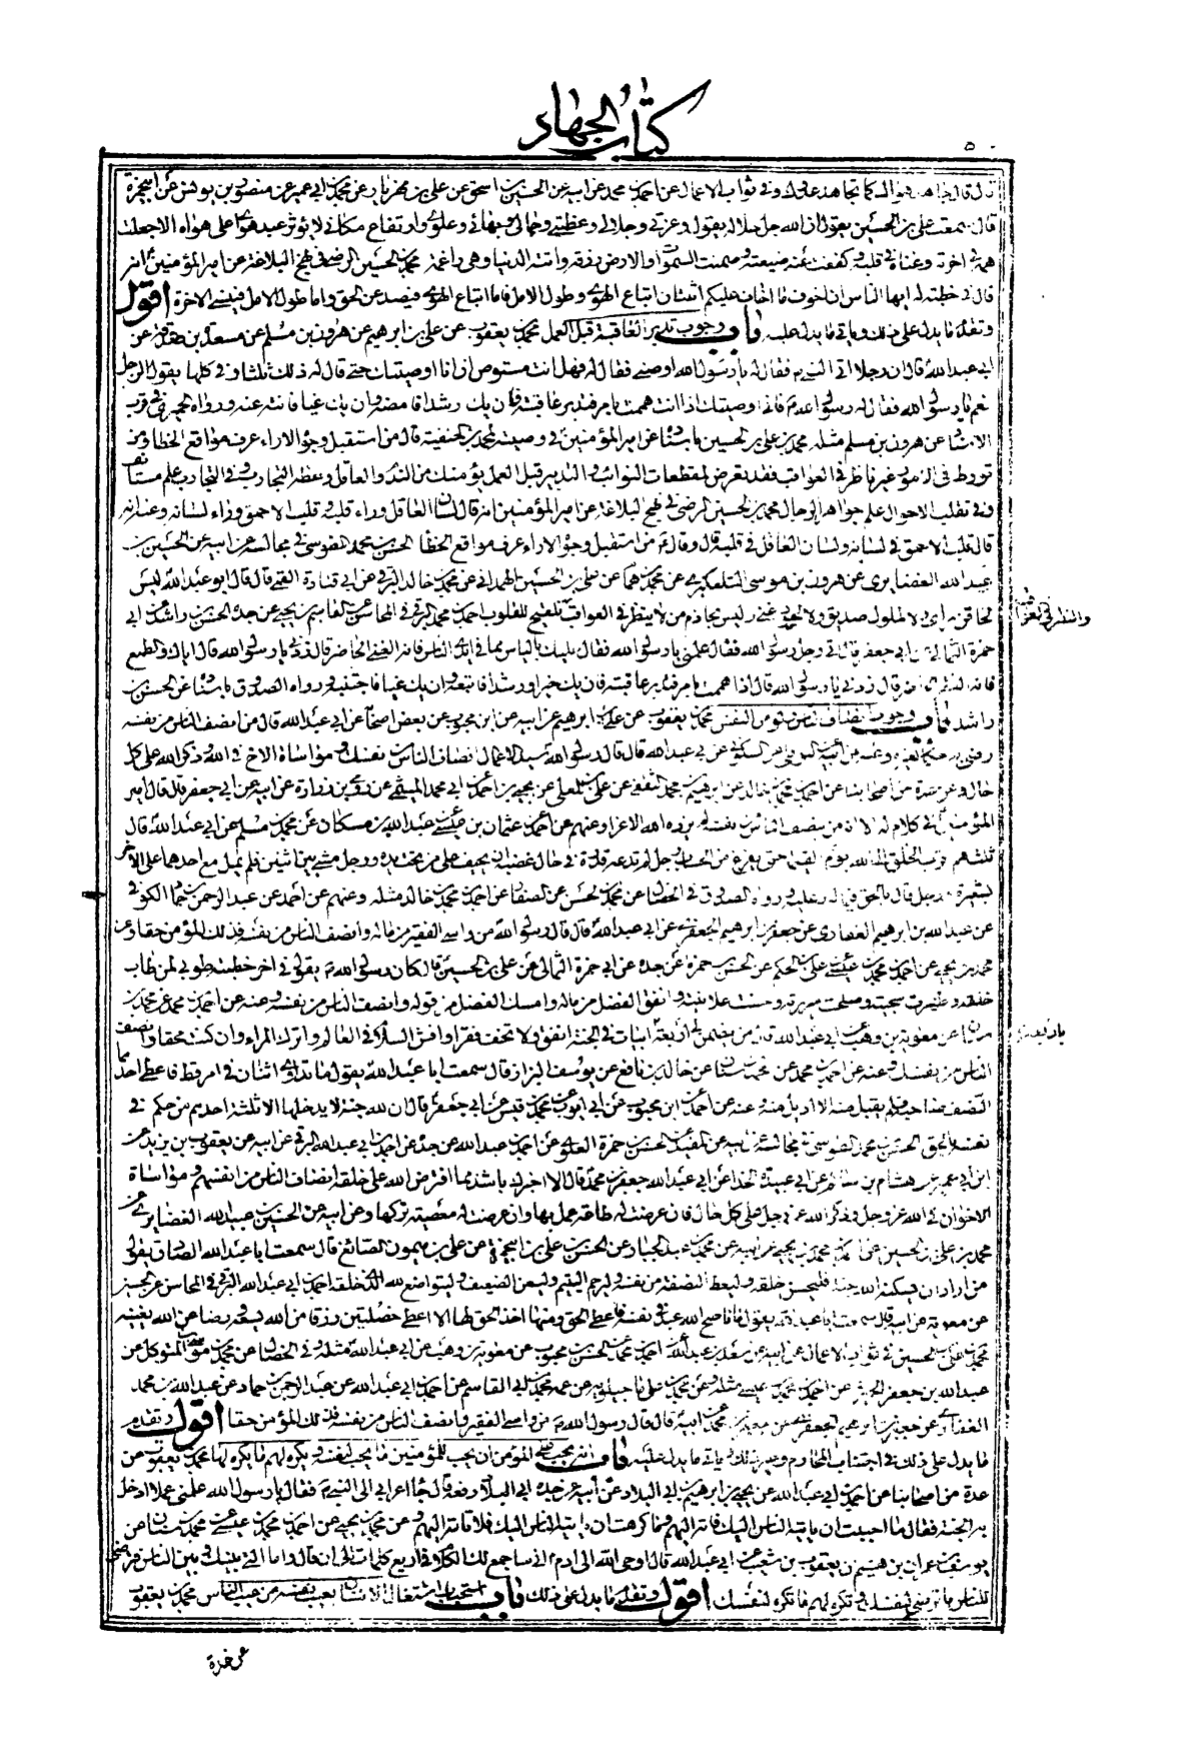 كتاب الجهاد
قال قال جاهد هواك كما تجاهد عدوك وفي ثواب الاعمال عن احمد بن محمد عن ابيه عن الحسين بن اسحق عن علي بن مهزيار عن محمد بن ابي عمير عن منصور بن يونس عن ابي حمزة
قال سمعت علي بن الحسين يقول ان الله جل جلاله يقول وعزتي وجلالي وعظمتي وجمالي وبهائي وعلوي وارتفاع مكاني لا يؤثر عبد هواي على هواه الا جعلت
همه في اخرته وغناه في قلبه وكففت عنه ضيعته وضمنت السموات والارض رزقه واتته الدنيا وهي راغمة محمد بن الحسين الرضي في نهج البلاغة عن امير المؤمنين انه
قال في خطبته له ايها الناس ان اخوف ما اخاف عليكم اثنتان اتباع الهوى وطول الامل فاما اتباع الهوى فيصد عن الحق واما طول الامل فينسي الاخرة اقول
وتقدم ما يدل على ذلك وياتي ما يدل عليه باب وجوب تدبر العاقبة قبل العمل محمد بن يعقوب عن علي بن ابرهيم عن هرون بن مسلم عن مسعدة بن صدقة عن
ابي عبد الله قال ان رجلا اتى النبي م فقال له يا رسول الله اوصني فقال له فهل انت مستوص اذا انا اوصيتك حتى قال له ذلك ثلثا وفي كلها يقول الرجل
نعم يا رسول الله فقال له رسول الله م فاني اوصيك اذا انت هممت بامر فتدبر عاقبته فان يك رشدا فامضه وان يك غيا فانته عنه ورواه الحميري في قرب
الاسناد عن هرون بن مسلم مثله محمد بن علي بن الحسين باسناده عن امير المؤمنين في وصيته لمحمد بن الحنفية قال من استقبل وجوه الاراء عرف مواقع الخطاء ومن
تورط في الامور غير ناظر في العواقب فقد تعرض لمقطعات النوائب والتدبير قبل العمل يؤمنك من الندم والعاقل من وعظه التجارب وفي التجارب علم مستانف
وفي تقلب الاحوال علم جواهر الرجال محمد بن الحسين الرضي في نهج البلاغة عن امير المؤمنين انه قال لسان العاقل وراء قلبه وقلب الاحمق وراء لسانه وعنه انه
قال قلب الاحمق في لسانه ولسان العاقل في قلبه قال وقال م من استقبل وجوه الاراء عرف مواقع الخطأ الحسن بن محمد الطوسي في مجالسه عن ابيه عن الحسين بن
عبيد الله الغضايري عن هرون بن موسى التلعكبري عن محمد بن همام عن علي بن الحسين الهمداني عن محمد بن خالد البرقي عن ابي قتادة القمي قال قال ابو عبد الله ليس
لحاقن راي ولا لملول صديق ولا لحسود غنى وليس بحازم من لا ينظر في العواقب تلقيح للقلوب احمد بن محمد البرقي في المحاسن عن القاسم بن يحيى عن جده الحسن بن راشد عن ابي
حمزة الثمالي عن ابي جعفر قال اتى رجل رسول الله فقال علمني يا رسول الله فقال عليك بالياس مما في ايدي الناس فانه الغنى الحاضر قال زدني يا رسول الله قال اياك والطمع
فانه الفقر الحاضر قال زدني يا رسول الله قال اذا هممت بامر فتدبر عاقبته فان يك خيرا ورشدا فاتبعه وان يك غيا فاجتنبه ورواه الصدوق باسناده عن الحسن بن
راشد باب وجوب انصاف الناس ولو من النفس محمد بن يعقوب عن علي بن ابرهيم عن ابيه عن ابن محبوب عن بعض اصحابه عن ابي عبد الله قال من انصف الناس من نفسه
رضي به حكما لغيره وعنه عن ابيه عن النوفلي عن السكوني عن ابي عبد الله قال قال رسول الله سيد الاعمال انصاف الناس من نفسك ومواساة الاخ في الله وذكر الله على كل
حال وعن عدة من اصحابنا عن احمد بن محمد بن خالد عن ابرهيم بن محمد الثقفي عن علي بن المعلى عن يحيى بن احمد عن ابي محمد الميثمي عن رومي بن زرارة عن ابيه عن ابي جعفر قال قال امير
المؤمنين في كلام له الا انه من ينصف الناس من نفسه لم يزده الله الا عزا وعنهم عن احمد عن عثمان بن عيسى عن عبد الله بن مسكان عن محمد بن مسلم عن ابي عبد الله قال
ثلثة هم اقرب الخلق الى الله يوم القيمة حتى يفرغ من الحساب رجل لم تدعه قدرة في حال غضبه ان يحيف على من تحت يده ورجل مشى بين اثنين فلم يمل مع احدهما على الاخر
بشعيرة ورجل قال بالحق فيما له وعليه ورواه الصدوق في الخصال عن محمد بن الحسن عن الصفار عن احمد بن محمد بن خالد مثله وعنهم عن احمد عن عبد الرحمن بن حماد الكوفي
عن عبد الله بن ابرهيم الغفاري عن جعفر بن ابرهيم الجعفري عن ابي عبد الله قال قال رسول الله من واسى الفقير من ماله وانصف الناس من نفسه فذلك المؤمن حقا وعن
محمد بن يحيى عن احمد بن محمد بن عيسى عن علي بن الحكم عن الحسن بن حمزة عن جده عن ابي حمزة الثمالي عن علي بن الحسين قال كان رسول الله م يقول في اخر خطبته طوبى لمن طاب
خلقه وطهرت سجيته وصلحت سريرته وحسنت علانيته وانفق الفضل من ماله وامسك الفضل من قوله وانصف الناس من نفسه وعنه عن احمد بن محمد عن محمد بن
سنان عن معوية بن وهب عن ابي عبد الله قال من يضمن لي اربعة بابيات في الجنة انفق ولا تخف فقرا وافش السلام في العالم واترك المراء وان كنت محقا وانصف
الناس من نفسك وعنه عن احمد بن محمد عن محمد بن سنان عن خالد بن نافع عن يوسف البزاز قال سمعت ابا عبد الله يقول ما تدارى اثنان في امر قط فاعطى احدهما
النصف صاحبه فلم يقبل منه الا اديل منه وعنه عن احمد عن ابن محبوب عن ابي ايوب عن محمد بن قيس عن ابي جعفر قال ان لله جنة لا يدخلها الا ثلثة احدهم من حكم في
نفسه بالحق الحسن بن محمد الطوسي في مجالسه عن ابيه عن المفيد عن الحسن بن حمزة العلوي عن احمد بن عبد الله عن جده عن احمد بن ابي عبد الله البرقي عن ابيه عن يعقوب بن يزيد عن
ابن ابي عمير عن هشام بن سالم عن ابي عبيدة الحذا عن ابي عبد الله جعفر بن محمد قال الا اخبرك باشد ما افترض الله على خلقه انصاف الناس من انفسهم ومواساة
الاخوان في الله عز وجل وذكر الله عز وجل على كل حال فان عرضت له طاعة عمل بها وان عرضت له معصية تركها وعن ابيه عن الحسين بن عبيد الله الغضايري عن
محمد بن علي بن الحسين عن احمد بن محمد بن يحيى عن ابيه عن محمد بن عبد الجبار عن الحسن بن علي بن ابي حمزة عن علي بن ميمون الصائغ قال سمعت ابا عبد الله الصادق يقول
من اراد ان يسكنه الله جنته فليحسن خلقه وليعط النصفة من نفسه وليرحم اليتيم وليعن الضعيف وليتواضع لله الذي خلقه احمد بن ابي عبد الله البرقي في المحاسن عن الحسن
عن معوية عن ابيه قال سمعت ابا عبد الله يقول ما ناصح الله عبد في نفسه فاعطى الحق منها واخذ الحق لها الا اعطي خصلتين رزقا من الله يسعه ورضا عن الله يغنيه
محمد بن علي بن الحسين في ثواب الاعمال عن ابيه عن سعد بن عبد الله عن احمد بن محمد عن الحسن بن محبوب عن معوية بن وهب عن ابي عبد الله مثله وفي الخصال عن محمد بن موسى بن المتوكل عن
عبد الله بن جعفر الحميري عن احمد بن محمد بن عيسى مثله وعن محمد بن علي ماجيلويه عن عمه محمد بن ابي القاسم عن احمد بن ابي عبد الله عن عبد الرحمن بن حماد عن عبد الله بن محمد
الغفاري عن جعفر بن ابرهيم الجعفري عن جعفر بن محمد عن ابيه قال قال رسول الله م من واسى الفقير وانصف الناس من نفسه فذلك المؤمن حقا اقول وتقدم
ما يدل على ذلك في اجتناب المحارم وغير ذلك وياتي ما يدل عليه باب انه يجب على المؤمن ان يحب للمؤمنين ما يحب لنفسه ويكره لهم ما يكره لها محمد بن يعقوب عن
عدة من اصحابنا عن احمد بن ابي عبد الله عن يحيى بن ابرهيم بن ابي البلاد عن ابيه عن جده ابي البلاد رفعه قال جاء اعرابي الى النبي م فقال يا رسول الله علمني عملا ادخل
به الجنة فقال ما احببت ان ياتيه الناس اليك فاته اليهم وما كرهت ان ياتيه الناس اليك فلا تاته اليهم وعن محمد بن يحيى عن احمد بن محمد بن عيسى عن محمد بن سنان عن
يوسف بن عمران بن ميثم عن يعقوب بن شعيب عن ابي عبد الله قال اوحى الله الى ادم اني ساجمع لك الكلام في اربع كلمات الى ان قال واما التي بينك وبين الناس فترضى
للناس ما ترضى لنفسك وتكره لهم ما تكره لنفسك اقول وتقدم ما يدل على ذلك باب استحباب اشتغال الانسان بعيب نفسه عن عيب الناس محمد بن يعقوب
عن عدة